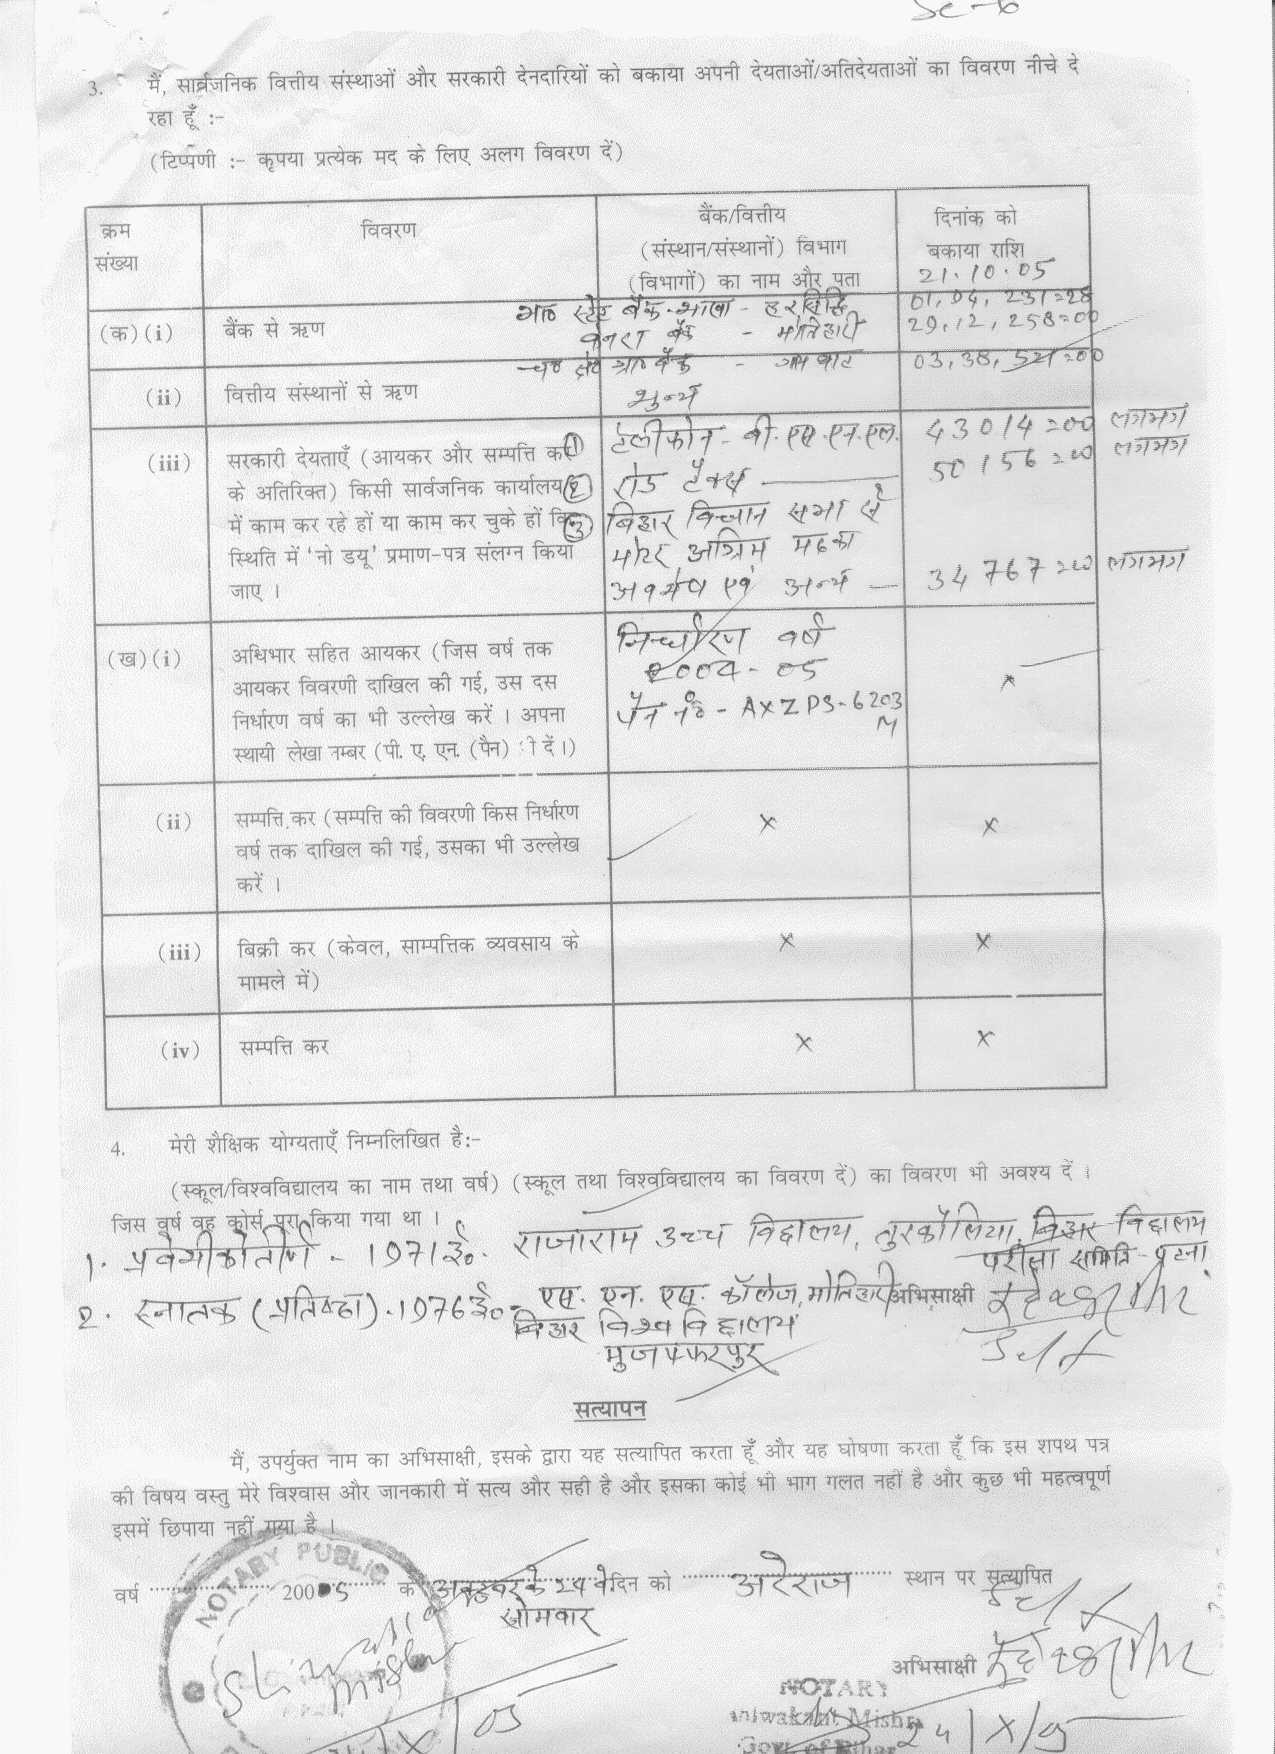 3. मैं, सार्वजनिक वित्तीय संस्थाओं और सरकारी देनदारियों को बकाया अपनी देयताओं/अतिदेयताओं का विवरण नीचे दे
रहा हूँ :-
(टिप्पणी :- कृपया प्रत्येक मद के लिए अलग विवरण दें)
क्रम संख्या
विवरण
बैंक/वित्तीय
(संस्थान/संस्थानों) विभाग
(विभागों) का नाम और पता
दिनांक को
बकाया राशि
21.10.05
(क)(i) बैंक से ऋण
भा० स्टेट बैंक-शाखा - हरसिद्धि 01,04,231=28
केनरा बैंक - मोतिहारी 29,12,258=00
ग्रा० बैंक - 03,38,521=00
(ii) वित्तीय संस्थानों से ऋण शुन्य
(iii) सरकारी देयताएँ (आयकर और सम्पत्ति कर
के अतिरिक्त) किसी सार्वजनिक कार्यालय
में काम कर रहे हों या काम कर चुके हों
स्थिति में 'नो डयू' प्रमाण-पत्र संलग्न किया
जाए ।
(1) टेलीफोन - बी.एस.एन.एल. 43014=00 लगभग
(2) रोड टैक्स 50156=00 लगभग
(3) बिहार विधान सभा से
मोटर अग्रिम मद का
अवशेष एवं अन्य - 34767=00 लगभग
(ख)(i) अधिभार सहित आयकर (जिस वर्ष तक
आयकर विवरणी दाखिल की गई, उस दस
निर्धारण वर्ष का भी उल्लेख करें । अपना
स्थायी लेखा नम्बर (पी. ए. एन. (पैन) दें।)
निर्धारण वर्ष
2004-05
पैन नं० - AXZPS-6203
M
x
(ii) सम्पत्ति कर (सम्पत्ति की विवरणी किस निर्धारण
वर्ष तक दाखिल की गई, उसका भी उल्लेख
करें ।
x x
(iii) बिक्री कर (केवल, साम्पत्तिक व्यवसाय के
मामले में)
x x
(iv) सम्पत्ति कर x x
4. मेरी शैक्षिक योग्यताएँ निम्नलिखित है:-
(स्कूल/विश्वविद्यालय का नाम तथा वर्ष) (स्कूल तथा विश्वविद्यालय का विवरण दें) का विवरण भी अवश्य दें ।
जिस वर्ष वह कोर्स पूरा किया गया था ।
1. - 1971ई० राजाराम उच्च विद्यालय, तुरकौलिया, बिहार विद्यालय
परीक्षा समिति - पटना
2. स्नातक (प्रतिष्ठा) - 1976ई० - एस. एन. एस. कॉलेज, मोतिहारी
बिहार विश्व विद्यालय
मुजफ्फरपुर
अभिसाक्षी
सत्यापन
मैं, उपर्युक्त नाम का अभिसाक्षी, इसके द्वारा यह सत्यापित करता हूँ और यह घोषणा करता हूँ कि इस शपथ पत्र
की विषय वस्तु मेरे विश्वास और जानकारी में सत्य और सही है और इसका कोई भी भाग गलत नहीं है और कुछ भी महत्वपूर्ण
इसमें छिपाया नहीं गया है ।
वर्ष 2005 के अक्टूबर के 24 वे दिन को अरेराज स्थान पर सत्यापित
सोमवार
अभिसाक्षी
NOTARY PUBLIC
NOTARY
Mishra
Govt. of Bihar
24/X/05